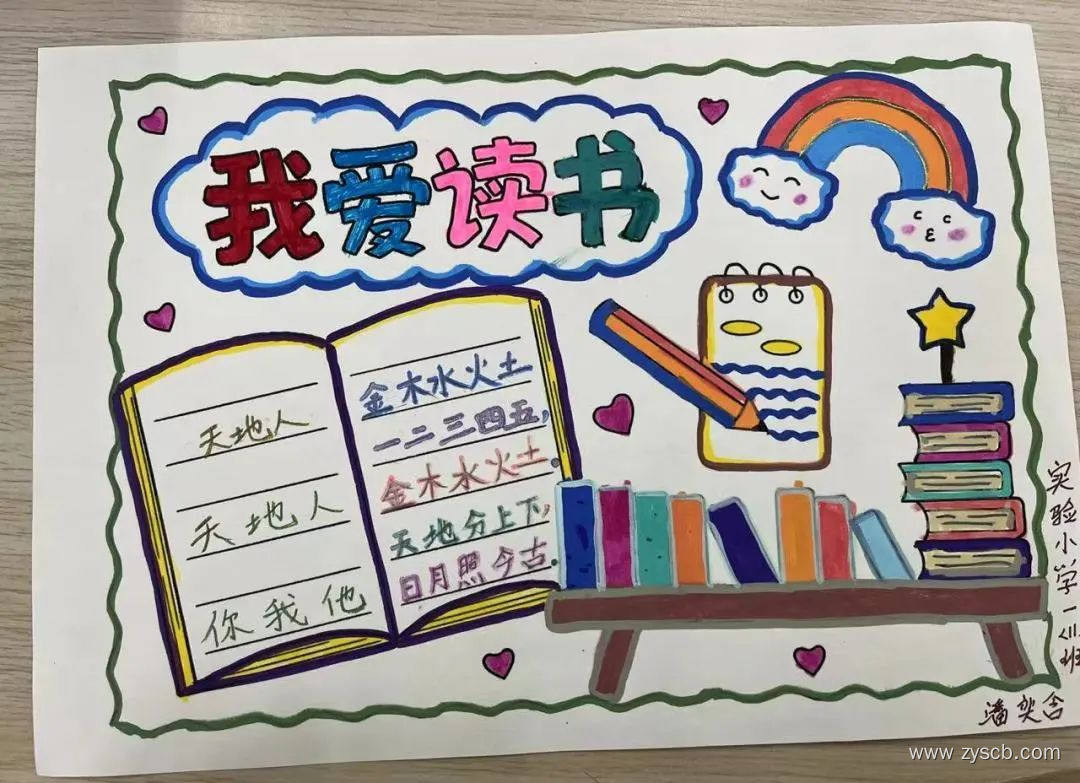 我爱读书
天地人
天地人
你我他
金木水火土
一二三四五,
金木水火土.
天地分上下,
日月照今古.
实验小学一(11)班
潘奕含
www.zyscb.com